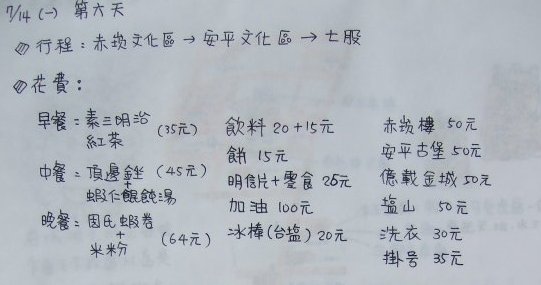 7/14 (一) 第六天
行程：赤崁文化區→安平文化區→七股
花費：
早餐：素三明治 紅茶 (35元)
中餐：頂邊銼 + 蝦仁餛飩湯 (45元)
晚餐：周氏蝦卷 + 米粉 (64元)
飲料 20+15元
餅 15元
明信片+零食 26元
加油 100元
冰棒(台塩) 20元
赤崁樓 50元
安平古堡 50元
億載金城 50元
塩山 50元
洗衣 30元
掛号 35元